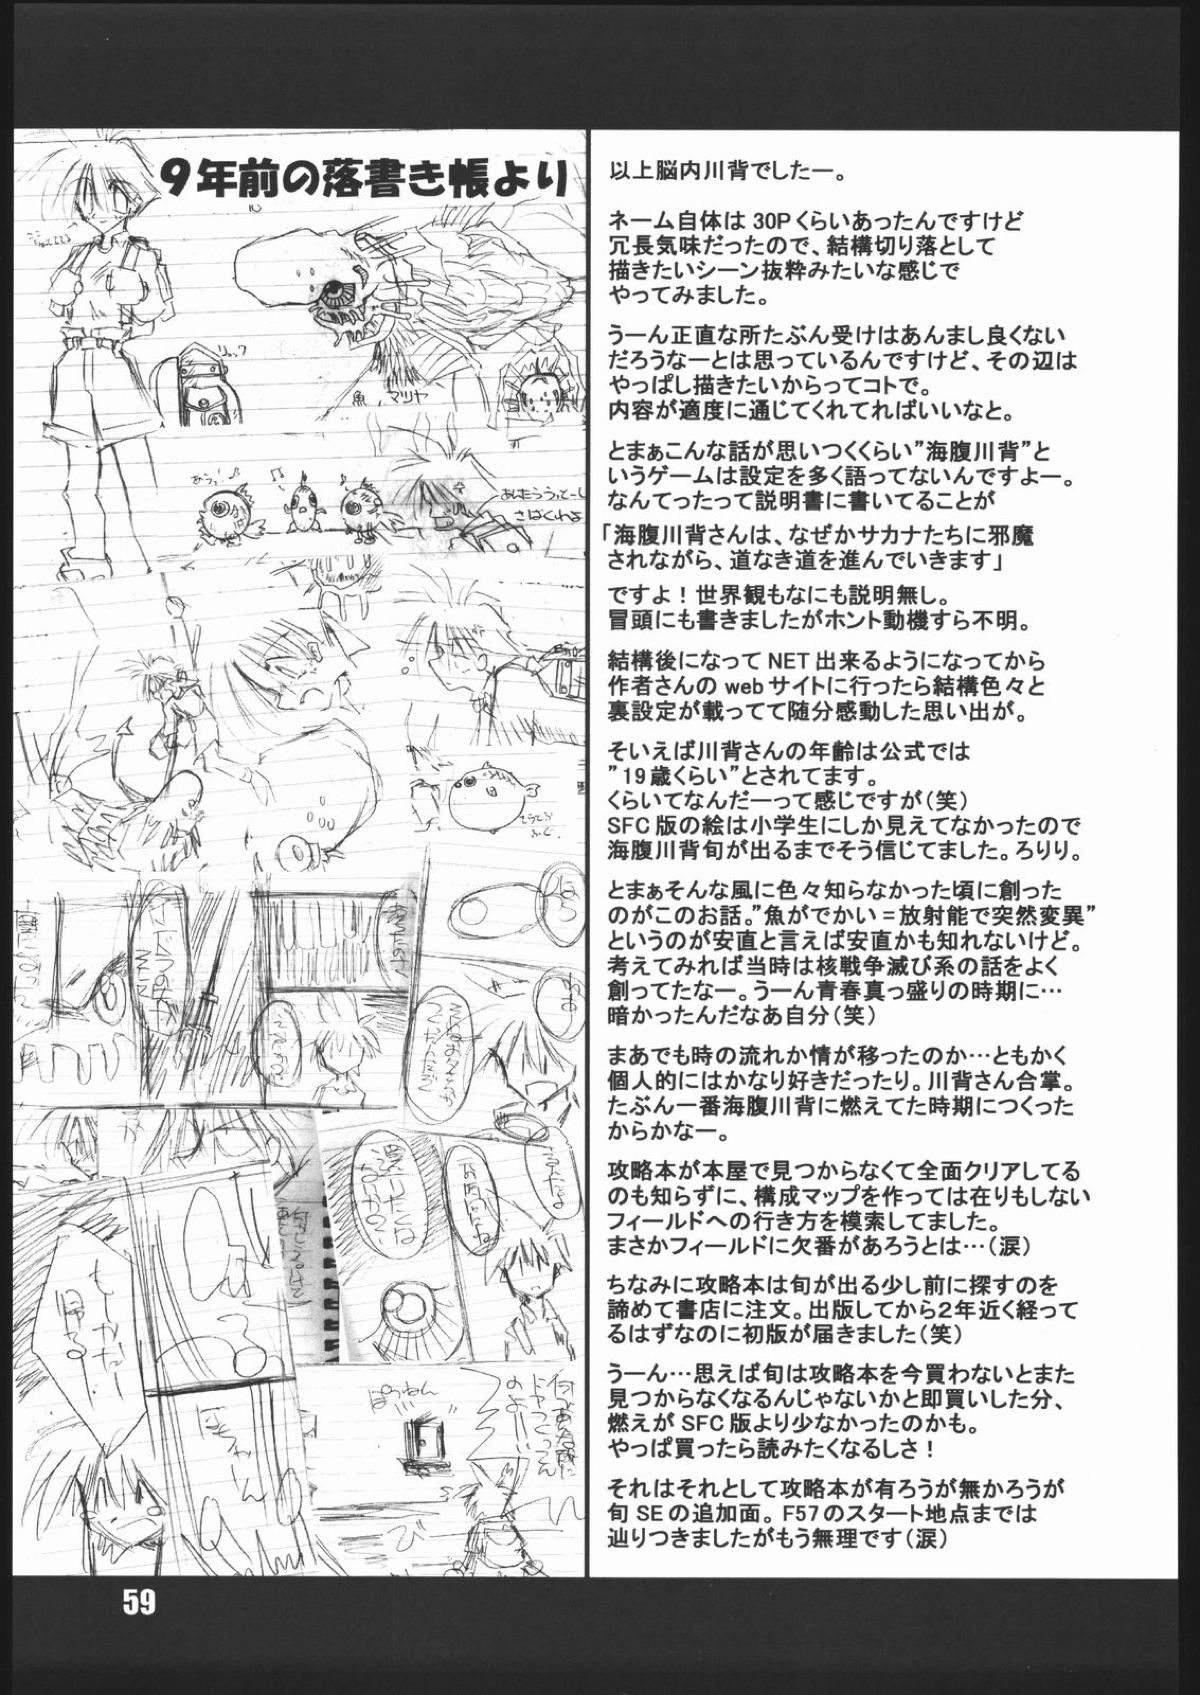 ９年前の落書き帳より
リュック
魚
マツヤ
あうぅ♪
あんたうってーし
さばくれよ
ぼつねん
び
59
以上脳内川背でしたー。
ネーム自体は 30P くらいあったんですけど
冗長気味だったので、結構切り落として
描きたいシーン抜粋みたいな感じで
やってみました。
うーん正直な所たぶん受けはあんまし良くない
だろうなーとは思っているんですけど、その辺は
やっぱし描きたいからってコトで。
内容が適度に通じてくれてればいいなと。
とまぁこんな話が思いつくくらい”海腹川背”と
いうゲームは設定を多く語ってないんですよー。
なんてったって説明書に書いてることが
「海腹川背さんは、なぜかサカナたちに邪魔
されながら、道なき道を進んでいきます」
ですよ！世界観もなにも説明無し。
冒頭にも書きましたがホント動機すら不明。
結構後になって NET 出来るようになってから
作者さんの web サイトに行ったら結構色々と
裏設定が載ってて随分感動した思い出が。
そいえば川背さんの年齢は公式では
”19 歳くらい”とされてます。
くらいてなんだーって感じですが（笑）
SFC 版の絵は小学生にしか見えてなかったので
海腹川背旬が出るまでそう信じてました。ろりり。
とまぁそんな風に色々知らなかった頃に創った
のがこのお話。”魚がでかい＝放射能で突然変異”
というのが安直と言えば安直かも知れないけど。
考えてみれば当時は核戦争滅び系の話をよく
創ってたなー。うーん青春真っ盛りの時期に…
暗かったんだなあ自分（笑）
まあでも時の流れか情が移ったのか…ともかく
個人的にはかなり好きだったり。川背さん合掌。
たぶん一番海腹川背に燃えてた時期につくった
からかなー。
攻略本が本屋で見つからなくて全面クリアしてる
のも知らずに、構成マップを作っては在りもしない
フィールドへの行き方を模索してました。
まさかフィールドに欠番があろうとは…（涙）
ちなみに攻略本は旬が出る少し前に探すのを
諦めて書店に注文。出版してから２年近く経って
るはずなのに初版が届きました（笑）
うーん…思えば旬は攻略本を今買わないとまた
見つからなくなるんじゃないかと即買いした分、
燃えが SFC 版より少なかったのかも。
やっぱ買ったら読みたくなるしさ！
それはそれとして攻略本が有ろうが無かろうが
旬 SE の追加面。F57 のスタート地点までは
辿りつきましたがもう無理です（涙）